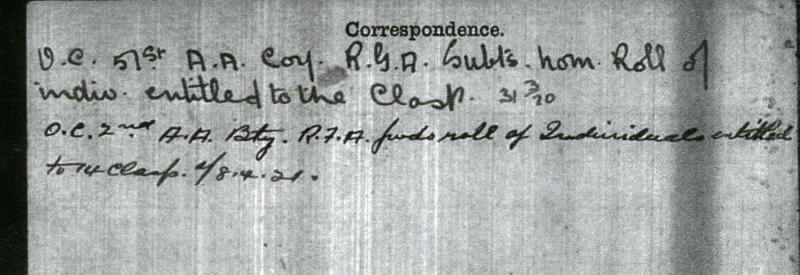 Correspondence.
O.C. 51st A.A. Coy. R.G.A. Subts. nom. Roll of
indiv. entitled to the Clasp. 31/3/20
O.C. 2nd A.A. Bty. R.F.A. fwds roll of Individuals entitled
to 14 Clasp. d/8.4.21.